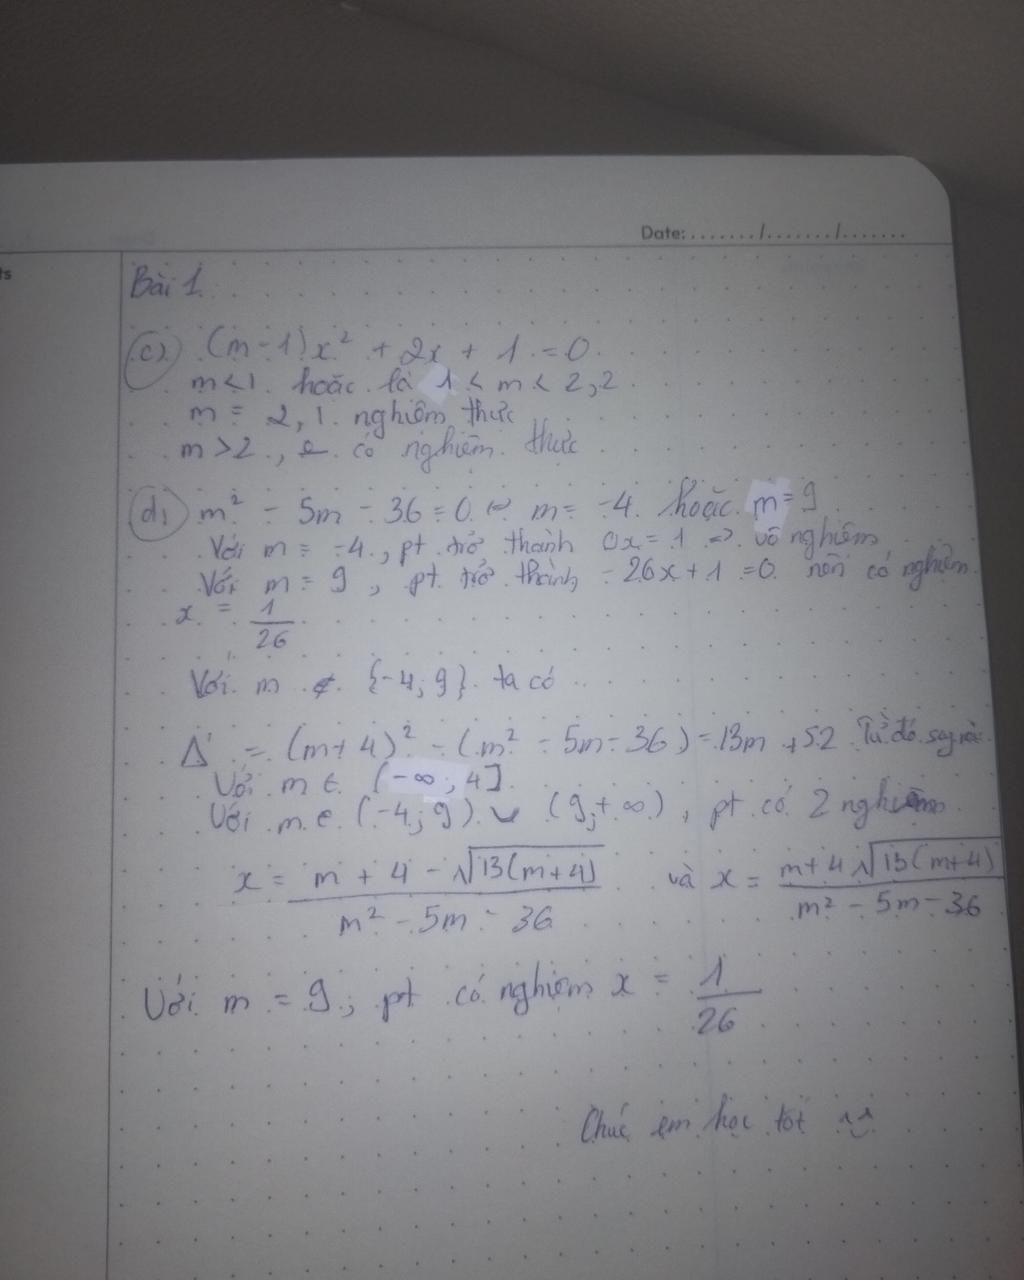 Date: ......./......./.......
ts
Bài 1.
c) (m-1)x² + 2x + 1 = 0
m<1 hoặc là 1 < m < 2, 2
m = 2, 1 nghiệm thực
m >2, 2 có nghiệm thực
d) m² - 5m - 36 = 0 ⇔ m = -4 hoặc m = 9
Với m = -4, pt trở thành 0x = 1 => vô nghiệm
Với m = 9, pt trở thành -26x + 1 = 0 nên có nghiệm
x = 1/26
Với m ∉ {-4; 9} ta có
Δ' = (m+4)² - (m² - 5m - 36) = 13m + 52 Từ đó suy ra
Với m ∈ (-∞; 4]
Với m ∈ (-4; 9) ∪ (9; +∞), pt có 2 nghiệm
x = (m + 4 - √13(m+4))/(m² - 5m - 36) và x = (m+4 √13(m+4))/(m² - 5m - 36)
Với m = 9; pt có nghiệm x = 1/26
Chúc em học tốt ^^